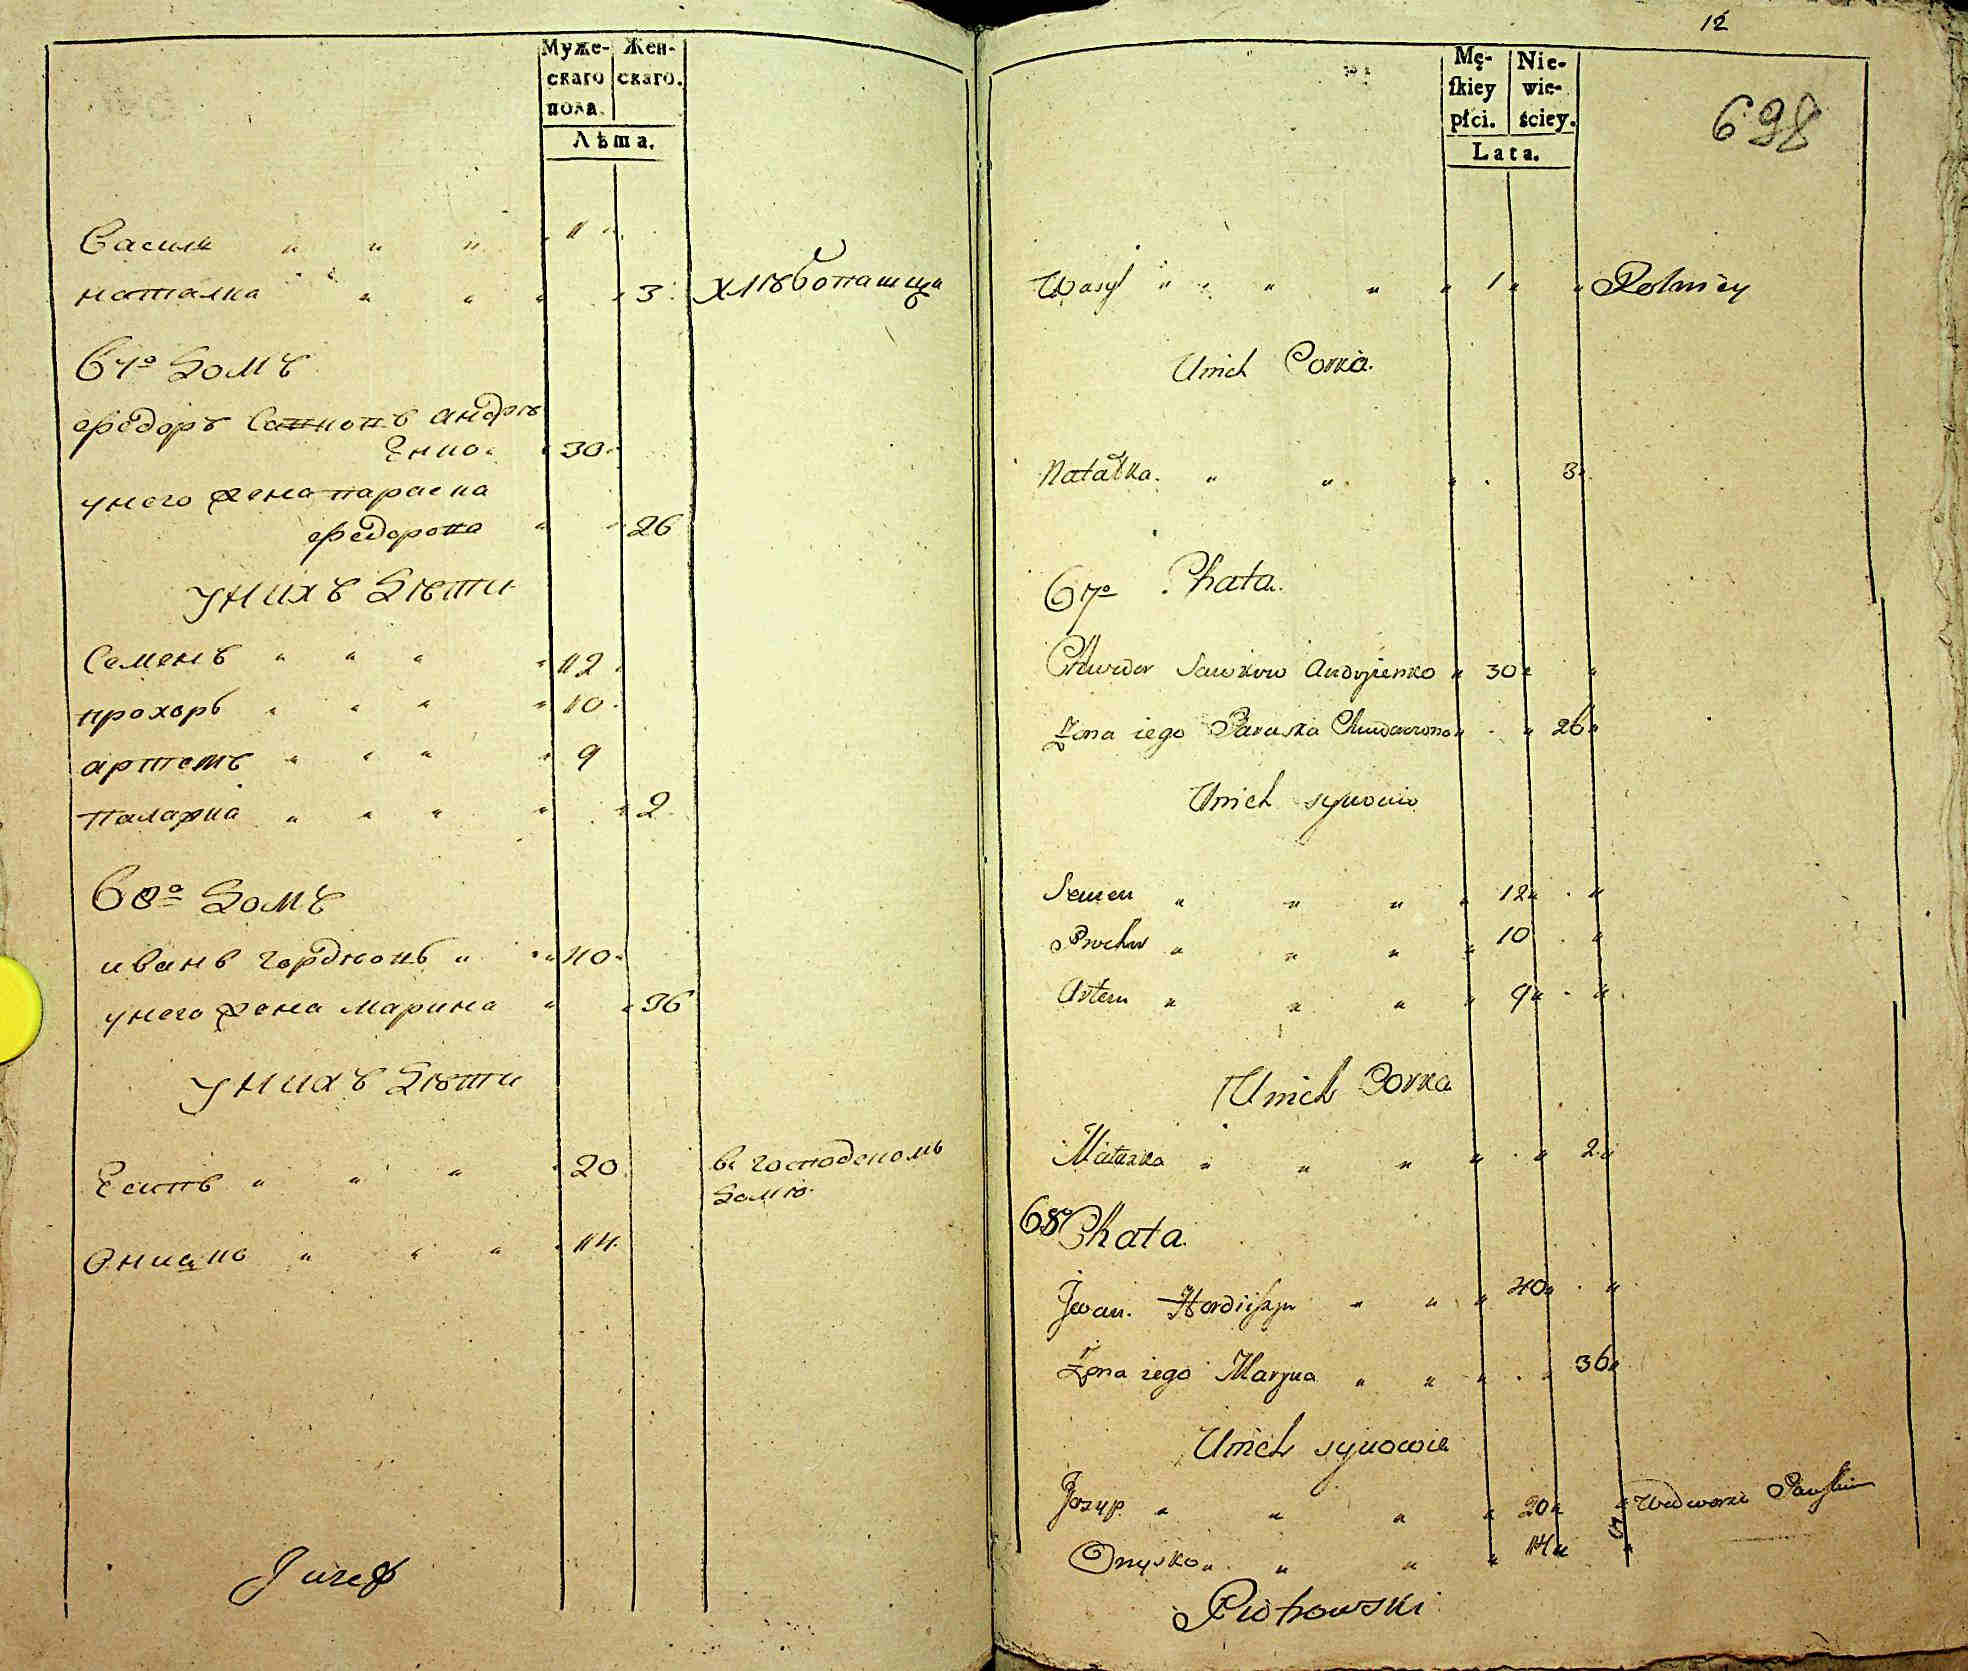 Муже- Жен-
скаго скаго.
пола.
Лѣта.
Василь " " " 1
наталка " " " 3 хлѣбопашци
67º домъ
федоръ Савковъ андрѣ
Енко 30
унего жена параска
федорова " 26
унихъ дѣти
Семенъ " " " 12
прохоръ " " " 10
артемъ " " " 9
" " " 2
68º домъ
иванъ " 40
унего жена марина " 36
унихъ дѣти
Есипъ " " " 20 в господскомъ
домѣ
Ониско " " " 14
Jurey
12
698
Mę- Nie-
ſkiey wie-
płci. ściey.
Lata.
Wasyl " " " " 1 " Rolnicy
Unich Corka.
Natałka. " " " 3
67º Chata.
Chwedor Sawkow Andryienko " 30 "
Żona iego Paraska Chwedorowa " " 26 "
Unich synowie
Semen " " " " 12 "
Prochor " " " " 10 "
Artem " " " " 9 "
Unich Corka
" " " " 2 "
68º Chata.
Jwan. " " " 40 "
Żona iego Maryna " " " 36 "
Unich synowie
Jozyp " " " " 20 " Wedworze Pańskim
Onysko " " " " 14 "
Piotrowski